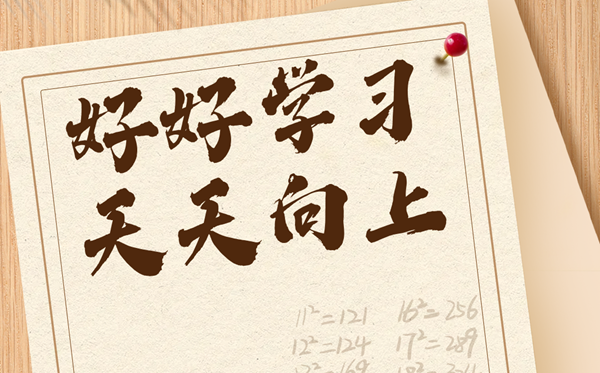 好好学习
天天向上
11²=121 16²=256
12²=124 17²=289
13²=169